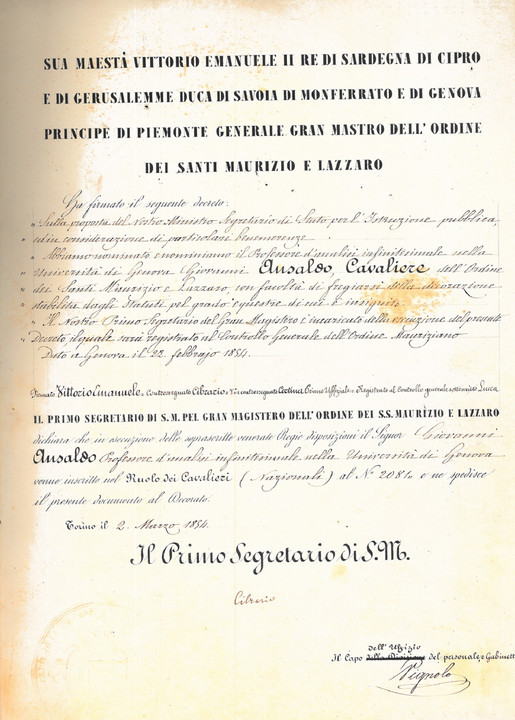 SUA MAESTÀ VITTORIO EMANUELE II RE DI SARDEGNA DI CIPRO
E DI GERUSALEMME DUCA DI SAVOIA DI MONFERRATO E DI GENOVA
PRINCIPE DI PIEMONTE GENERALE GRAN MASTRO DELL'ORDINE
DEI SANTI MAURIZIO E LAZZARO
Ha firmato il seguente decreto:
" Sulla proposta del Nostro Ministro Segretario di Stato per l'Istruzione pubblica,
ed in considerazione di particolari benemerenze.
" Abbiamo nominato e nominiamo il Professore d'analisi infinitesimale nella
" Università di Genova Giovanni Ansaldo, Cavaliere dell'Ordine
" dei Santi Maurizio e Lazzaro, con facoltà di fregiarsi della decorazione
" stabilita dagli Statuti pel grado equestre di cui è insignito
" Il Nostro Primo Segretario del Gran Magistero è incaricato della esecuzione del presente
" Decreto, il quale sarà registrato al Controllo Generale dell'Ordine Mauriziano
Dato a Genova il 22 febbrajo 1854.
Firmato Vittorio Emanuele, Contrassegnato Cibrario, Primo Uffiziale, Registrato al Controllo generale sottoscritto Luca
IL PRIMO SEGRETARIO DI S.M. PEL GRAN MAGISTERO DELL'ORDINE DEI S.S. MAURIZIO E LAZZARO
dichiara che in esecuzione delle soprascritte venerate Regie disposizioni il Signor Giovanni
Ansaldo Professore d'analisi infinitesimale nella Università di Genova
venne inscritto nel Ruolo dei Cavalieri (Nazionali) al N° 2081. e ne spedisce
il presente documento al Decorato.
Torino il 2. Marzo 1854.
Il Primo Segretario di S.M.
Cibrario
dell'Uffizio
Il Capo della Divisione del personale e Gabinetto
Pignolo